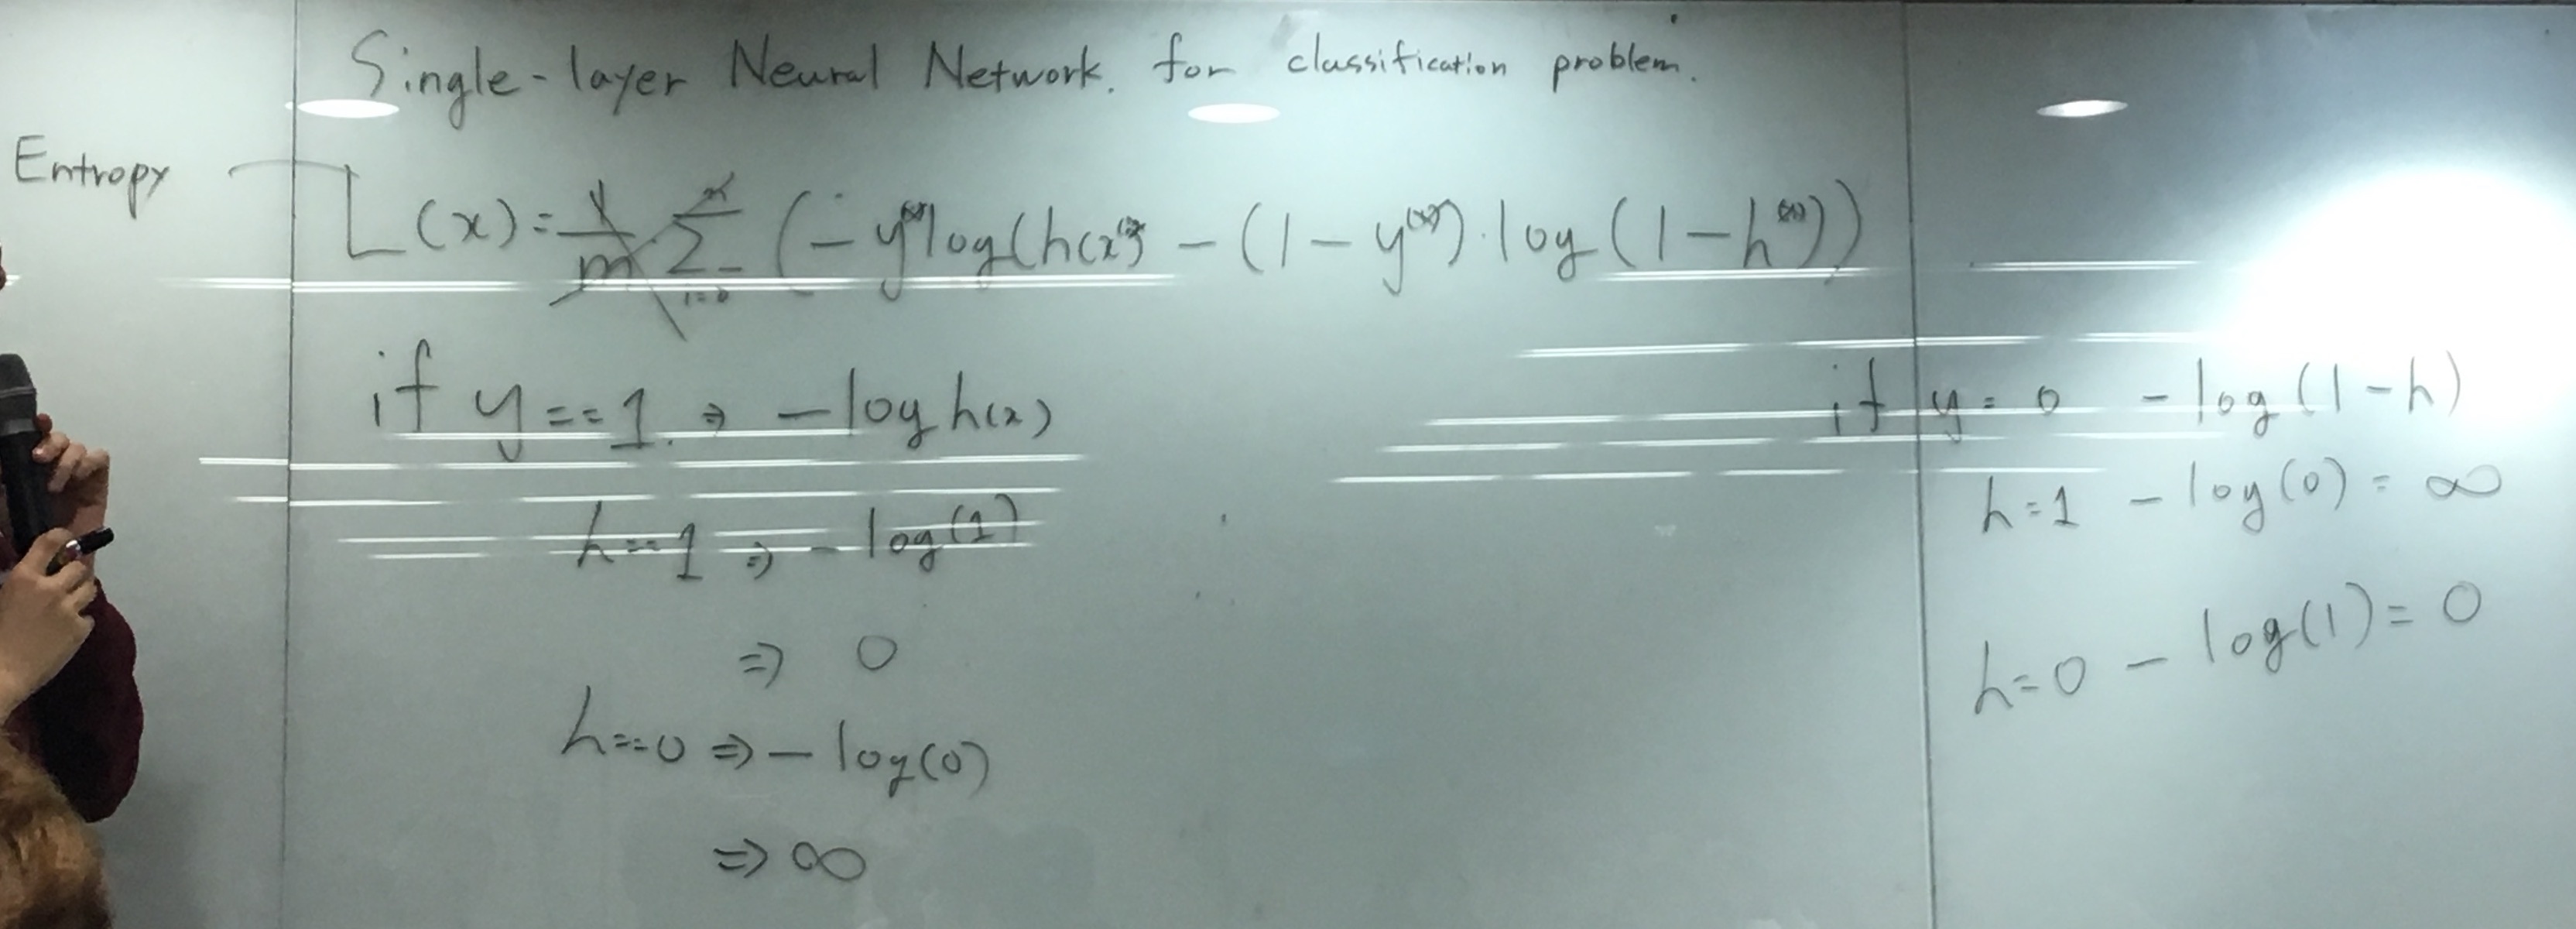 Single-layer Neural Network. for classification problem.
Entropy
L(x) = 1/m Σ i=0 (-y log(h(x)) - (1-y)·log(1-h))
if y==1. ⇒ -log h(x)
h==1 ⇒ -log(1)
⇒ 0
h==0 ⇒ -log(0)
⇒ ∞
if y=0 -log(1-h)
h=1 -log(0) = ∞
h=0 -log(1) = 0